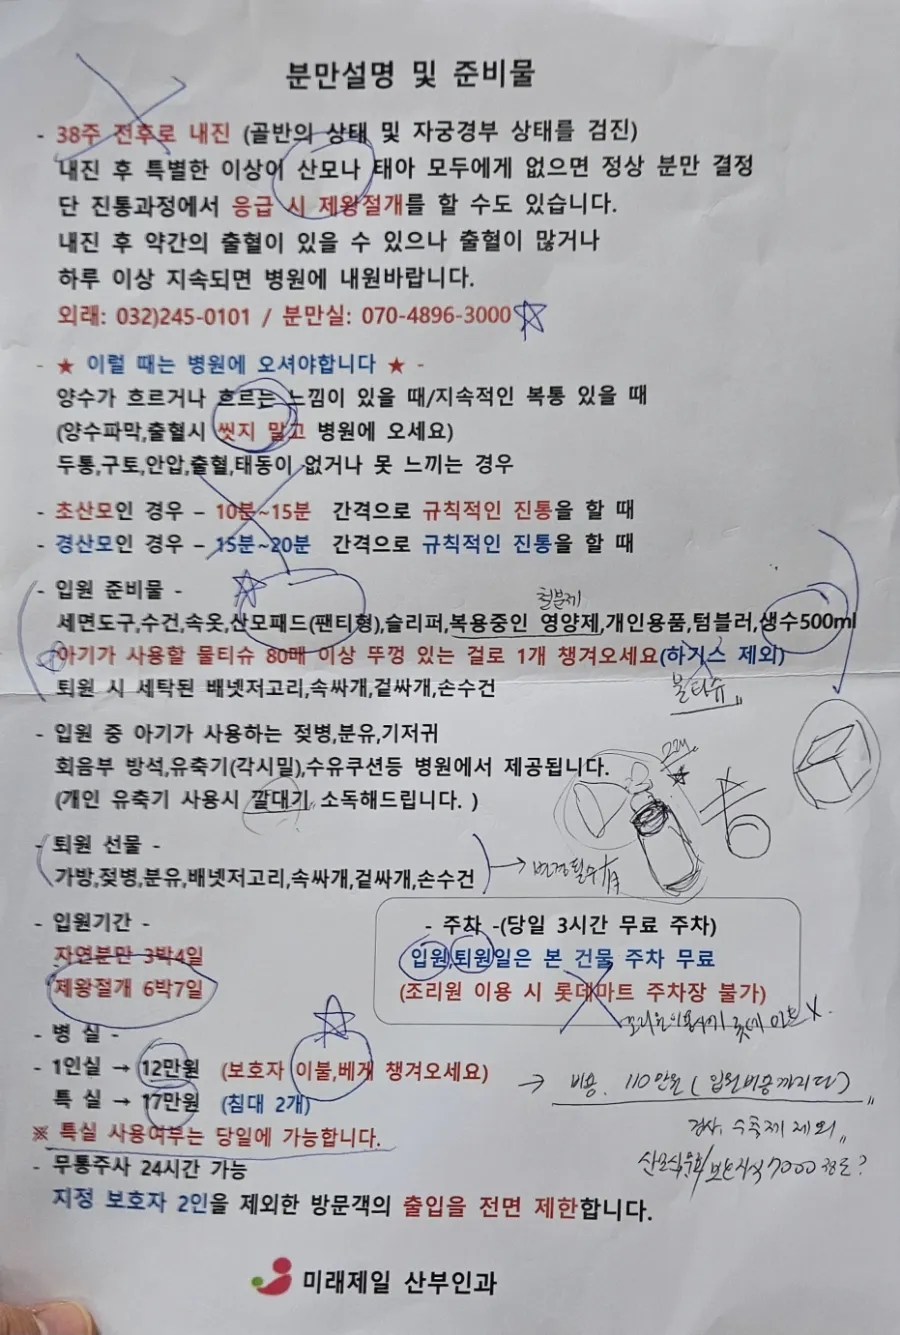 분만설명 및 준비물
- 38주 전후로 내진 (골반의 상태 및 자궁경부 상태를 검진)
내진 후 특별한 이상이 산모나 태아 모두에게 없으면 정상 분만 결정
단 진통과정에서 응급 시 제왕절개를 할 수도 있습니다.
내진 후 약간의 출혈이 있을 수 있으나 출혈이 많거나
하루 이상 지속되면 병원에 내원바랍니다.
외래: 032)245-0101 / 분만실: 070-4896-3000
- ★ 이럴 때는 병원에 오셔야합니다 ★ -
양수가 흐르거나 흐르는 느낌이 있을 때/지속적인 복통 있을 때
(양수파막,출혈시 씻지 말고 병원에 오세요)
두통,구토,안압,출혈,태동이 없거나 못 느끼는 경우
- 초산모인 경우 – 10분~15분 간격으로 규칙적인 진통을 할 때
- 경산모인 경우 – 15분~20분 간격으로 규칙적인 진통을 할 때
- 입원 준비물 -
철분제
세면도구,수건,속옷,산모패드(팬티형),슬리퍼,복용중인 영양제,개인용품,텀블러,생수500ml
아기가 사용할 물티슈 80매 이상 뚜껑 있는 걸로 1개 챙겨오세요(하기스 제외)
물티슈
퇴원 시 세탁된 배넷저고리,속싸개,겉싸개,손수건
- 입원 중 아기가 사용하는 젖병,분유,기저귀
회음부 방석,유축기(각시밀),수유쿠션등 병원에서 제공됩니다.
(개인 유축기 사용시 깔대기 소독해드립니다. )
- 퇴원 선물 -
가방,젖병,분유,배넷저고리,속싸개,겉싸개,손수건
→ 변경될수有
- 입원기간 -
자연분만 3박4일
제왕절개 6박7일
- 주차 -(당일 3시간 무료 주차)
입원,퇴원일은 본 건물 주차 무료
(조리원 이용 시 롯데마트 주차장 불가)
- 병 실 -
- 1인실 → 12만원 (보호자 이불,베개 챙겨오세요)
특 실 → 17만원 (침대 2개)
※ 특실 사용여부는 당일에 가능합니다.
- 무통주사 24시간 가능
지정 보호자 2인을 제외한 방문객의 출입을 전면 제한합니다.
→ 비용. 110만원 (입원비용까지다)
검사, 수축제 제외
미래제일 산부인과